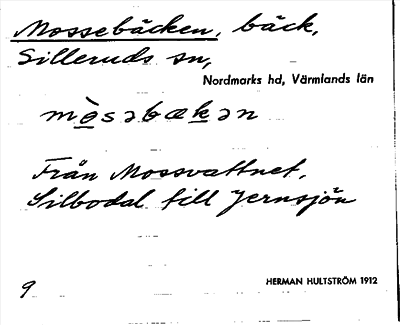 Mossebäcken, bäck,
Silleruds sn,
Nordmarks hd, Värmlands län
mòsəbækən
Från Mossvattnet,
Silbodal till Jernsjön
9
HERMAN HULTSTRÖM 1912